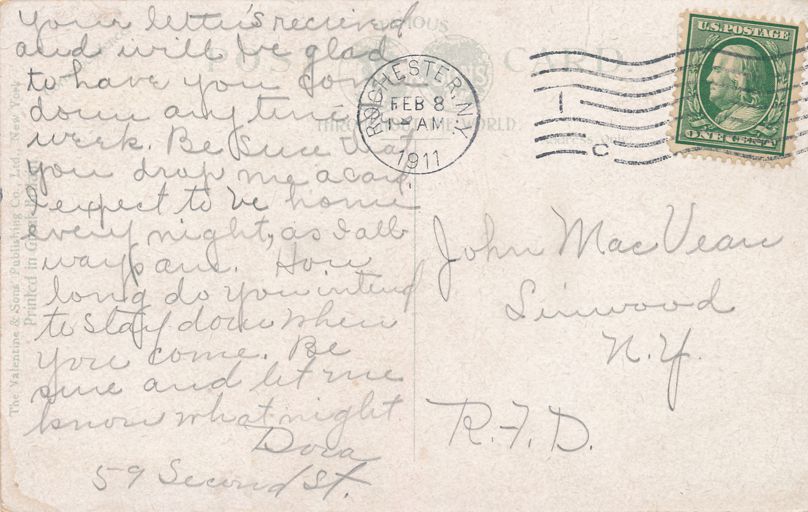 Your letter's recieved
and will be glad
to have you come
down any time
week. Be sure that
you drop me a card
I expect to be home
every night, as I all
ways am. How
long do you intend
to stay down when
you come. Be
sure and let me
know what night
Dora
59 Second St.
POST CARD
FAMOUS
THROUGHOUT THE WORLD.
ROCHESTER, N.Y.
FEB 8
1- AM
1911
1
C
U.S. POSTAGE
ONE CENT
John MacVean
Linwood
N.Y.
R.F.D.
The Valentine & Sons Publishing Co., Ltd., New York
Printed in Great